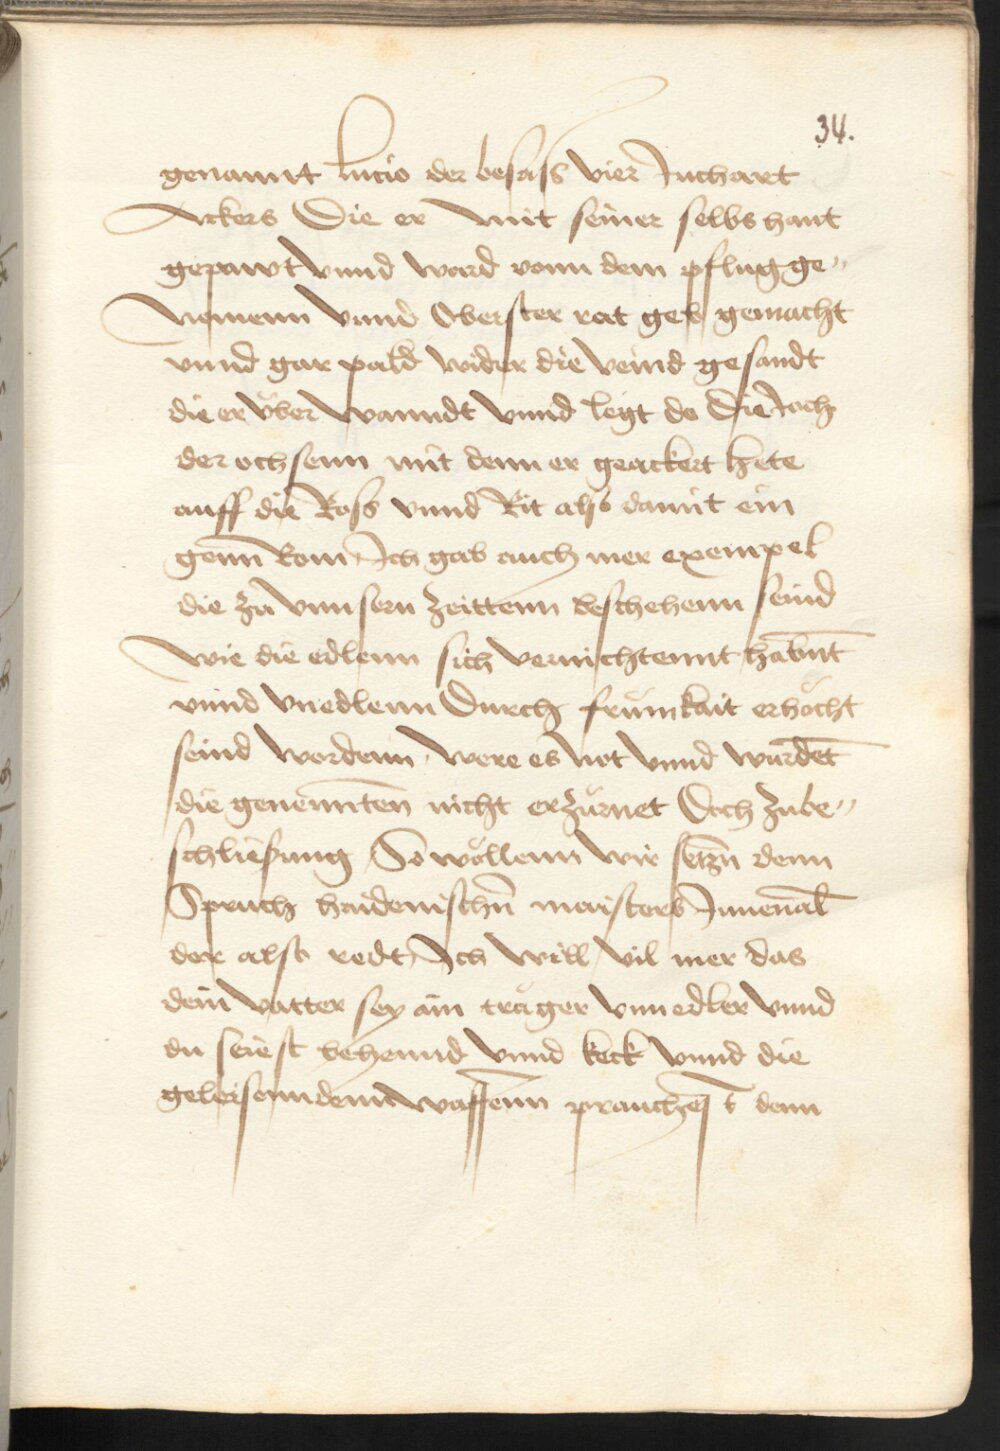 34.
genannt lucio der besass vier Juchart
Ackers Die er mit seiner selbs hant
gepawt vnnd ward vonn dem pflug ge„
Nomenn vnnd Oberster rat geb gemacht
vnnd gar pald wider die veind gesandt
die er v̈ber wanndt vnnd legt do Die Joch
der ochsenn mit denn er geackert hete
auff die Ross vnnd Rit also damit ein
genn Rom Ich gab auch mer exempel
die zu vnnsern zeittenn beschehenn seind
wie die edlenn sich vernichtennt habnt
vnnd vnedlenn Durch frümkait erhöcht
seind wordenn were es not vnnd wurdet
die genennten nicht erzürnet Doch zu be„
schliesung So wöllenn wir setzn denn
Spruch haidenischn maisters Juuenal
der also redt Ich will vil mer das
dein vatter sey ain träger vnnedler vnnd
du seiest behennd vnnd keck vnnd die
waffenn prauchest denn